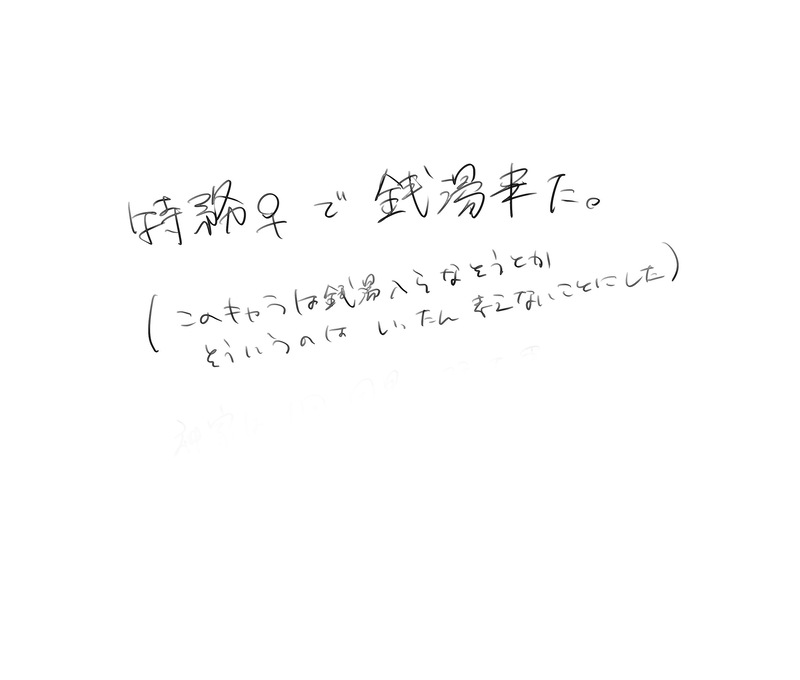 特務♀で銭湯来た。
(このキャラは銭湯入らなそうとか
そういうのは いったん考えないことにした)